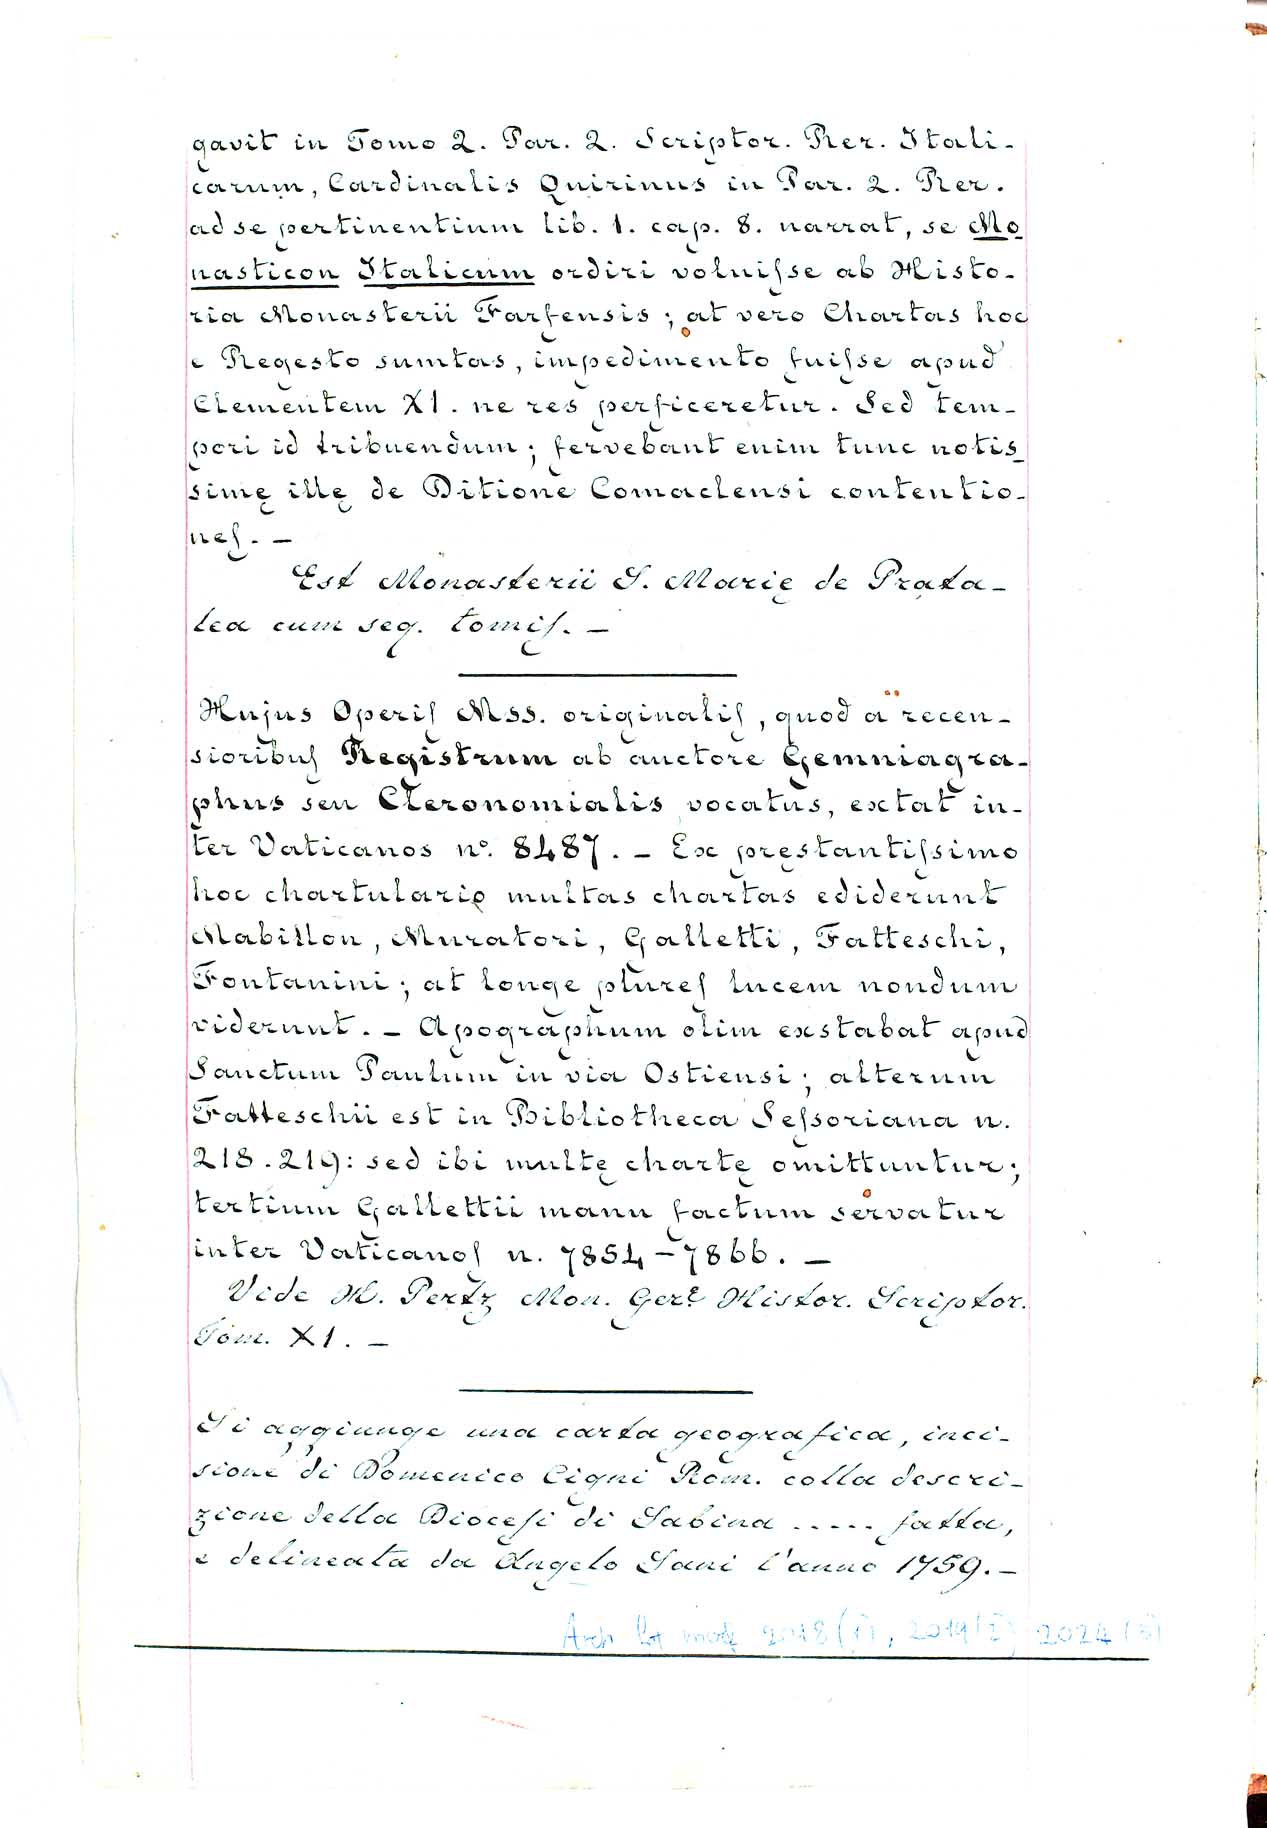 gavit in Tomo 2. Par. 2. Scriptor. Rer. Itali-
carum, Cardinalis Quirinus in Par. 2. Rer.
ad se pertinentium lib. 1. cap. 8. narrat, se Mo
nasticon Italicum ordiri voluisse ab Histo-
ria Monasterii Farfensis; at vero Chartas hoc
e Regesto sumtas, impedimento fuisse apud
Clementem XI. ne res perficeretur. Sed tem-
pori id tribuendum; fervebant enim tunc notis
simę illę de Ditione Comaclensi contentio-
nes. –
Est Monasterii S. Marię de Prata-
lea cum seq. tomis. –
Hujus Operis Mss. originalis, quod a recen-
sioribus Registrum ab auctore Gemniagra-
phus seu Cleronomialis vocatus, extat in-
ter Vaticanos nº. 8487. – Ex pręstantissimo
hoc chartulario multas chartas ediderunt
Mabillon, Muratori, Galletti, Fatteschi,
Fontanini; at longe plures lucem nondum
viderunt. – Apographum olim exstabat apud
Sanctum Paulum in via Ostiensi; alterum
Fatteschii est in Bibliotheca Sessoriana n.
218.219: sed ibi multę chartę omittuntur;
tertium Gallettii manu factum servatur
inter Vaticanos n. 7854–7866. –
Vide H. Pertz Mon. Gerę Histor. Scriptor.
Tom. XI. –
Si aggiunge una carta geografica, inci-
sione di Domenico Cigni Rom. colla descri-
zione della Diocesi di Sabina ..... fatta,
e delineata da Angelo Sani l'anno 1759. –
Arch 2018 (I), 2019 (I) 2024